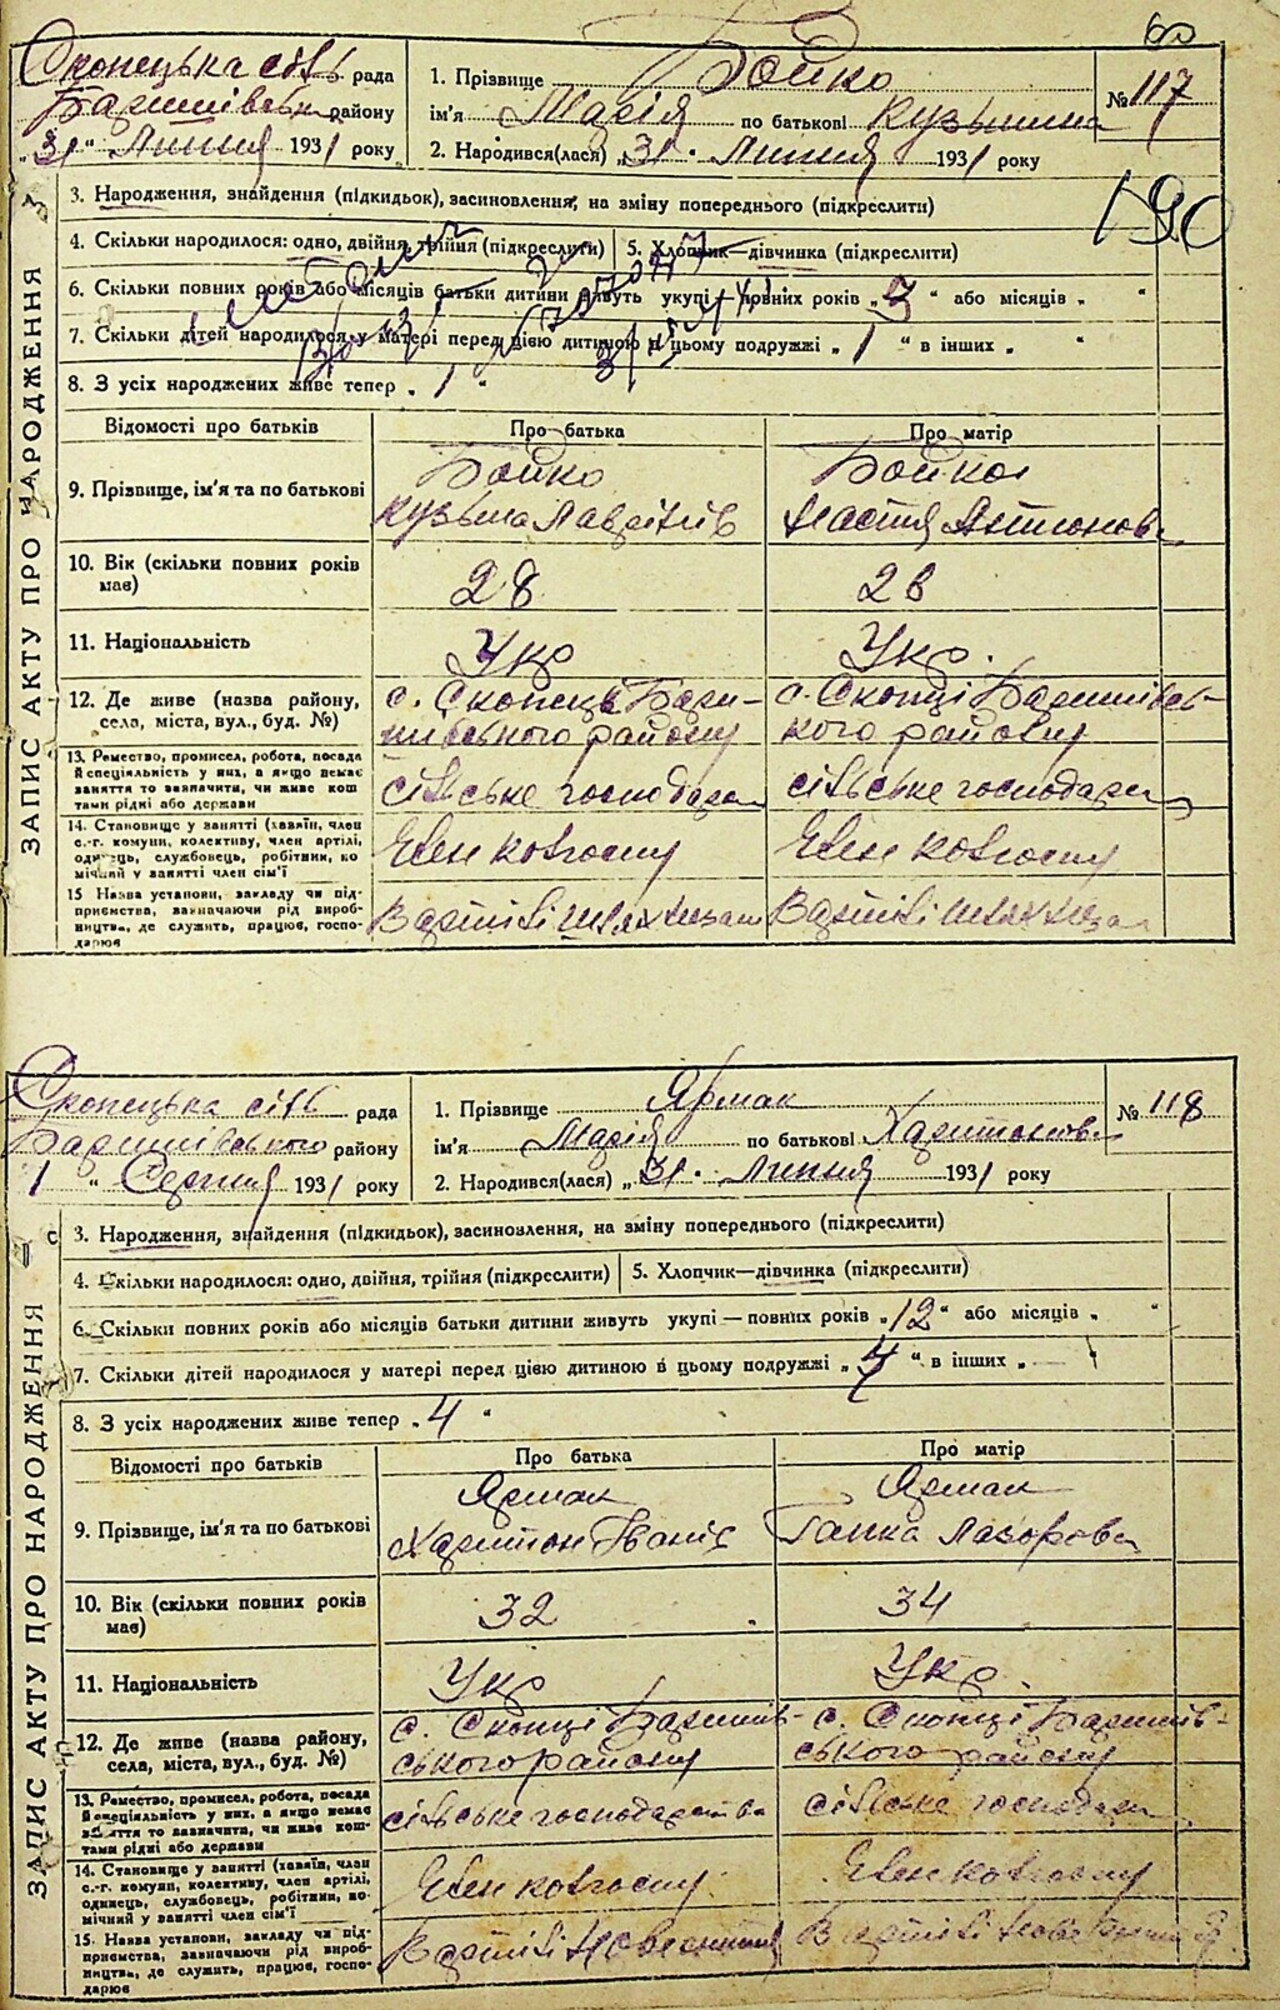 60
Скопецька сіль рада
Баришівськ району
„31“ Липня 1931 року
1. Прізвище Бойко
ім'я Марія по батькові Кузьмина
2. Народився(лася) „31“ Липня 1931 року
№ 117
190
ЗАПИС АКТУ ПРО НАРОДЖЕННЯ
3. Народження, знайдення (підкидьок), засиновлення, на зміну попереднього (підкреслити)
4. Скільки народилося: одно, двійня, трійня (підкреслити) 5. Хлопчик—дівчинка (підкреслити)
6. Скільки повних років або місяців батьки дитини живуть укупі — повних років „3“ або місяців „ “
7. Скільки дітей народилося у матері перед цією дитиною в цьому подружжі „1“ в інших „ “
8. З усіх народжених живе тепер „1“
Відомості про батьків Про батька Про матір
9. Прізвище, ім'я та по батькові
Бойко Бойко
Кузьма Лаврінів Настя Антонова
10. Вік (скільки повних років має) 28 28
11. Національність Укр Укр.
12. Де живе (назва району, села, міста, вул., буд. №)
с. Скопець Бари- с. Скопці Баришівсь-
шівського району кого району
13. Ремество, промисел, робота, посада й спеціяльність у них, а якщо немає заняття то зазначити, чи живе коштами рідні або держави
сільське господар сільське господар
14. Становище у занятті (хазяїн, член с.-г. комуни, колективу, член артілі, одинець, службовець, робітник, помічний у занятті член сім'ї
Член колгоспу Член колгоспу
15 Назва установи, закладу чи підприємства, зазначаючи рід виробництва, де служить, працює, господарює
В артілі В артілі
Скопецька сіль рада
Баришівського району
1 “ Серпня 1931 року
1. Прізвище Ярмак
ім'я Марія по батькові Харитонова
2. Народився(лася) „31“ Липня 1931 року
№ 118
ЗАПИС АКТУ ПРО НАРОДЖЕННЯ
3. Народження, знайдення (підкидьок), засиновлення, на зміну попереднього (підкреслити)
4. Скільки народилося: одно, двійня, трійня (підкреслити) 5. Хлопчик—дівчинка (підкреслити)
6. Скільки повних років або місяців батьки дитини живуть укупі — повних років „12“ або місяців „ “
7. Скільки дітей народилося у матері перед цією дитиною в цьому подружжі „4“ в інших „ — “
8. З усіх народжених живе тепер „4“
Відомості про батьків Про батька Про матір
9. Прізвище, ім'я та по батькові
Ярмак Ярмак
Харитон Іванів Ганка Лазорова
10. Вік (скільки повних років має) 32 34
11. Національність Укр Укр.
12. Де живе (назва району, села, міста, вул., буд. №)
с. Скопці Баришів- с. Скопці Баришів-
ського району ського району
13. Ремество, промисел, робота, посада й спеціяльність у них, а якщо немає заняття то зазначити, чи живе коштами рідні або держави
сільське господарства сільське господар
14. Становище у занятті (хазяїн, член с.-г. комуни, колективу, член артілі, одинець, службовець, робітник, помічний у занятті член сім'ї
Член колгоспу Член колгоспу
15. Назва установи, закладу чи підприємства, зазначаючи рід виробництва, де служить, працює, господарює
В артілі В артілі